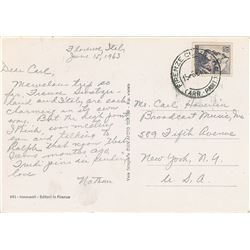 Florence, Italy
June 15, 1963
Dear Carl,
Marvelous trip so
far. France Switzer-
land and Italy are each
charming in its own
way. But the high point
I think was meeting
and talking to
Ralph that
months ago.
Trudi joins in sending
love
Nathan
Mr. Carl Haverlin
Broadcast Music, Inc.
589 Fifth Avenue
New York, N.Y.
U.S.A.
FIRENZE
Innocenti - Editori in Firenze